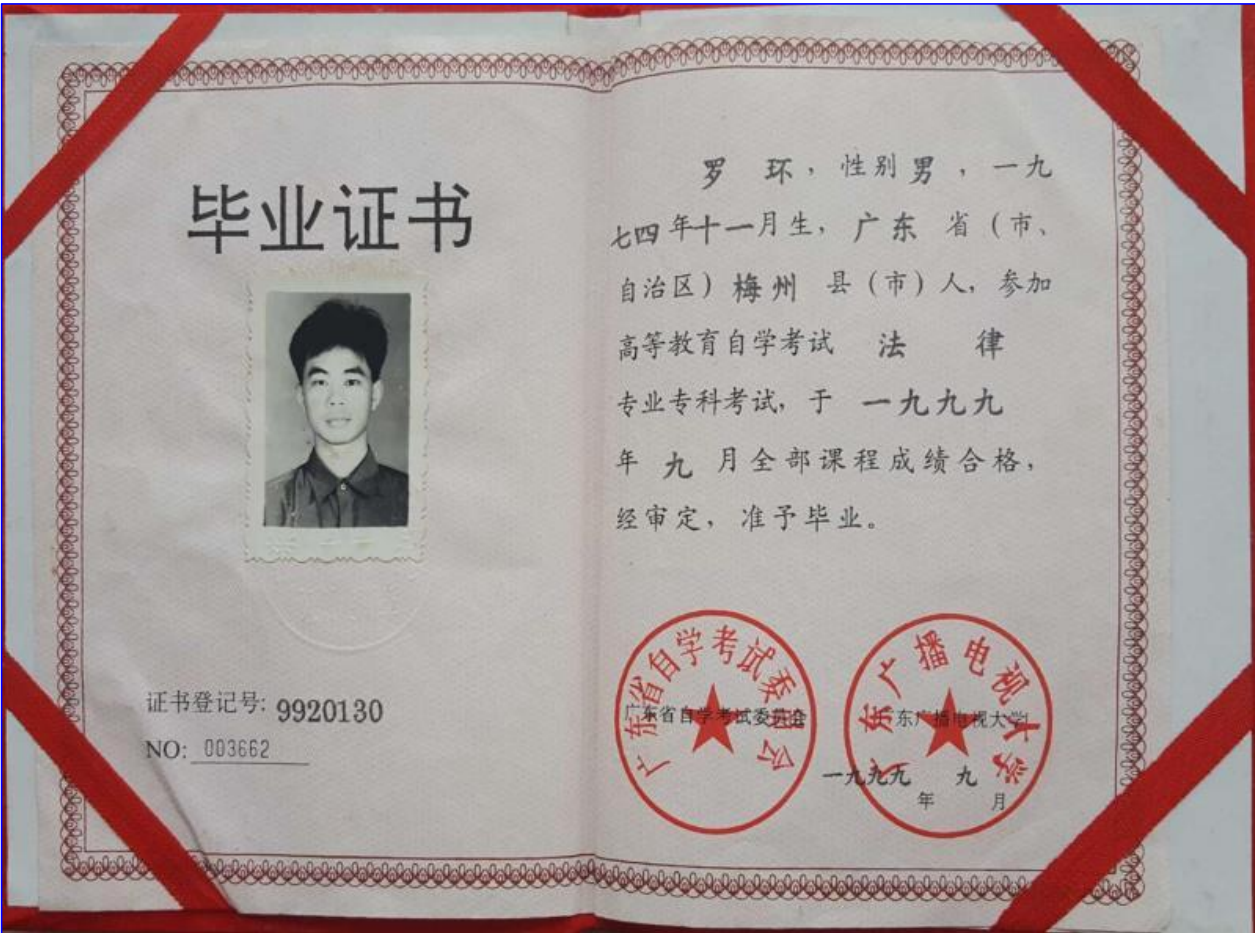 毕业证书
证书登记号: 9920130
NO: 003662
罗 环，性别男，一九
七四年十一月生，广东 省（市、
自治区）梅州 县（市）人，参加
高等教育自学考试 法 律
专业专科考试，于 一九九九
年 九 月全部课程成绩合格，
经审定，准予毕业。
广东省自学考试委员会
广东省自学考试委员会
广东广播电视大学
广东广播电视大学
一九九九 九
年 月